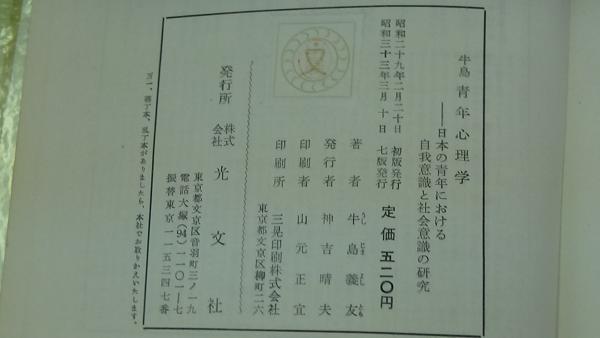 牛島 青年心理学
——日本の青年における
自我意識と社会意識の研究
昭和二十九年二月二十日 初版発行
昭和三十三年三月 十日 七版発行
定価 五二〇円
著者 牛島義友
うし じま よし とも
発行者 神吉晴夫
印刷者 山元正宜
印刷所 三晃印刷株式会社
東京都文京区柳町二六
発行所 株式会社 光文社
東京都文京区音羽町三ノ一九
電話大塚(94)二一〇一—七
振替東京一一五三四七番
万一、落丁本、乱丁本がありましたら、本社でお取りかえいたします。